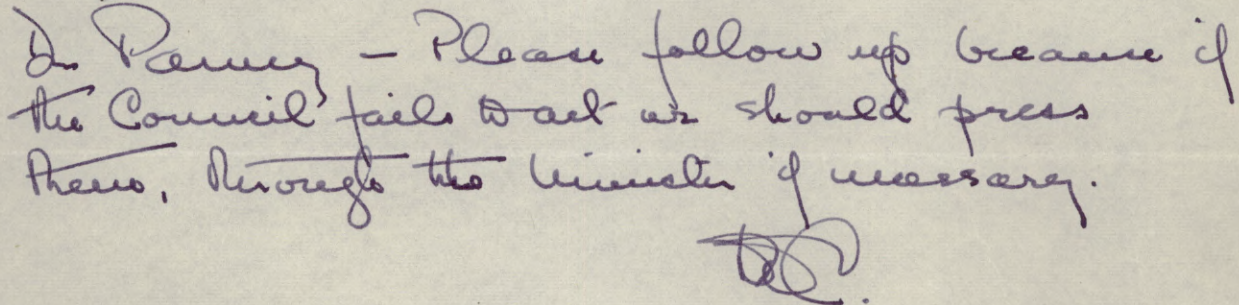 Dr Penny – Please follow up because if
the Council fails to act we should press
them, through the Minister if necessary.